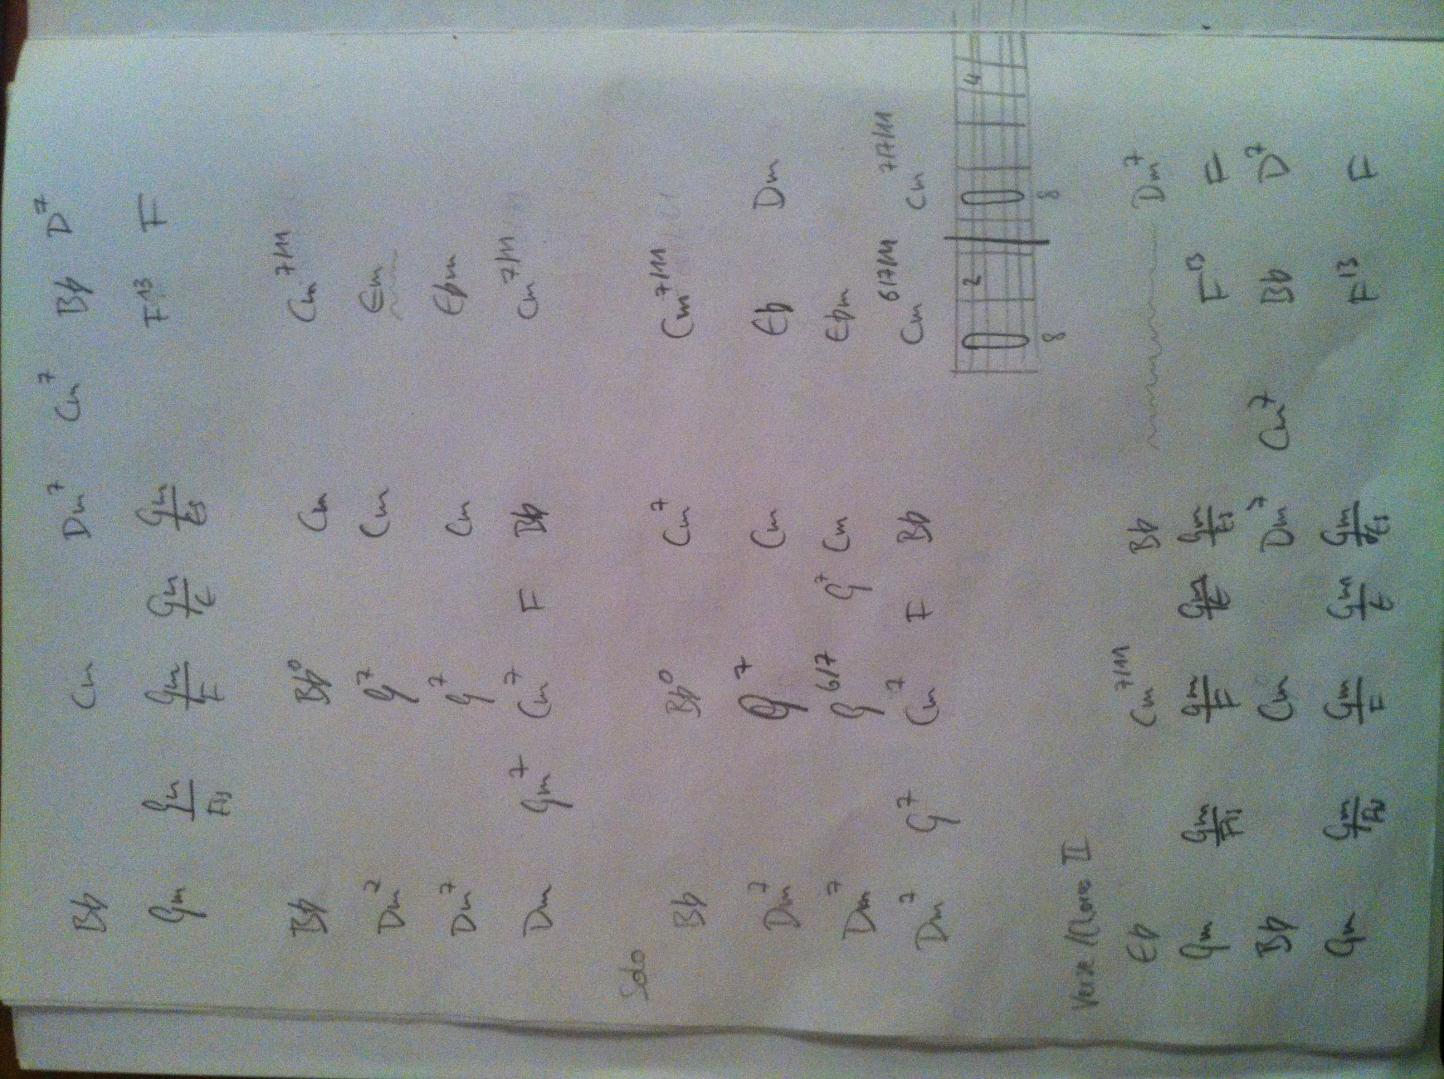 Bb Cm Dm7 Cm7 Bb D7
Gm Gm/Fis Gm/F Gm/E Gm/Es F13 F
Bb Bb0 Cm Cm7/11
Dm7 G7 Cm Em
Dm7 G7 Cm Ebm
Dm Gm7 Cm7 F Bb Cm7/11
Solo
Bb Bb0 Cm7 Cm7/11
Dm7 G7 Cm Eb Dm
Dm7 G6/7 G7 Cm Ebm
Dm7 G7 Cm7 F Bb Cm6/7/11 Cm7/7/11
2 4
8 8
Verse II
Eb Cm7/11 Bb Dm7
Gm Gm/Fis Gm/F Gm/E Gm/Es F13 F
Bb Cm Dm7 Cm7 Bb D7
Gm Gm/Fis Gm/F Gm/E Gm/Es F13 F